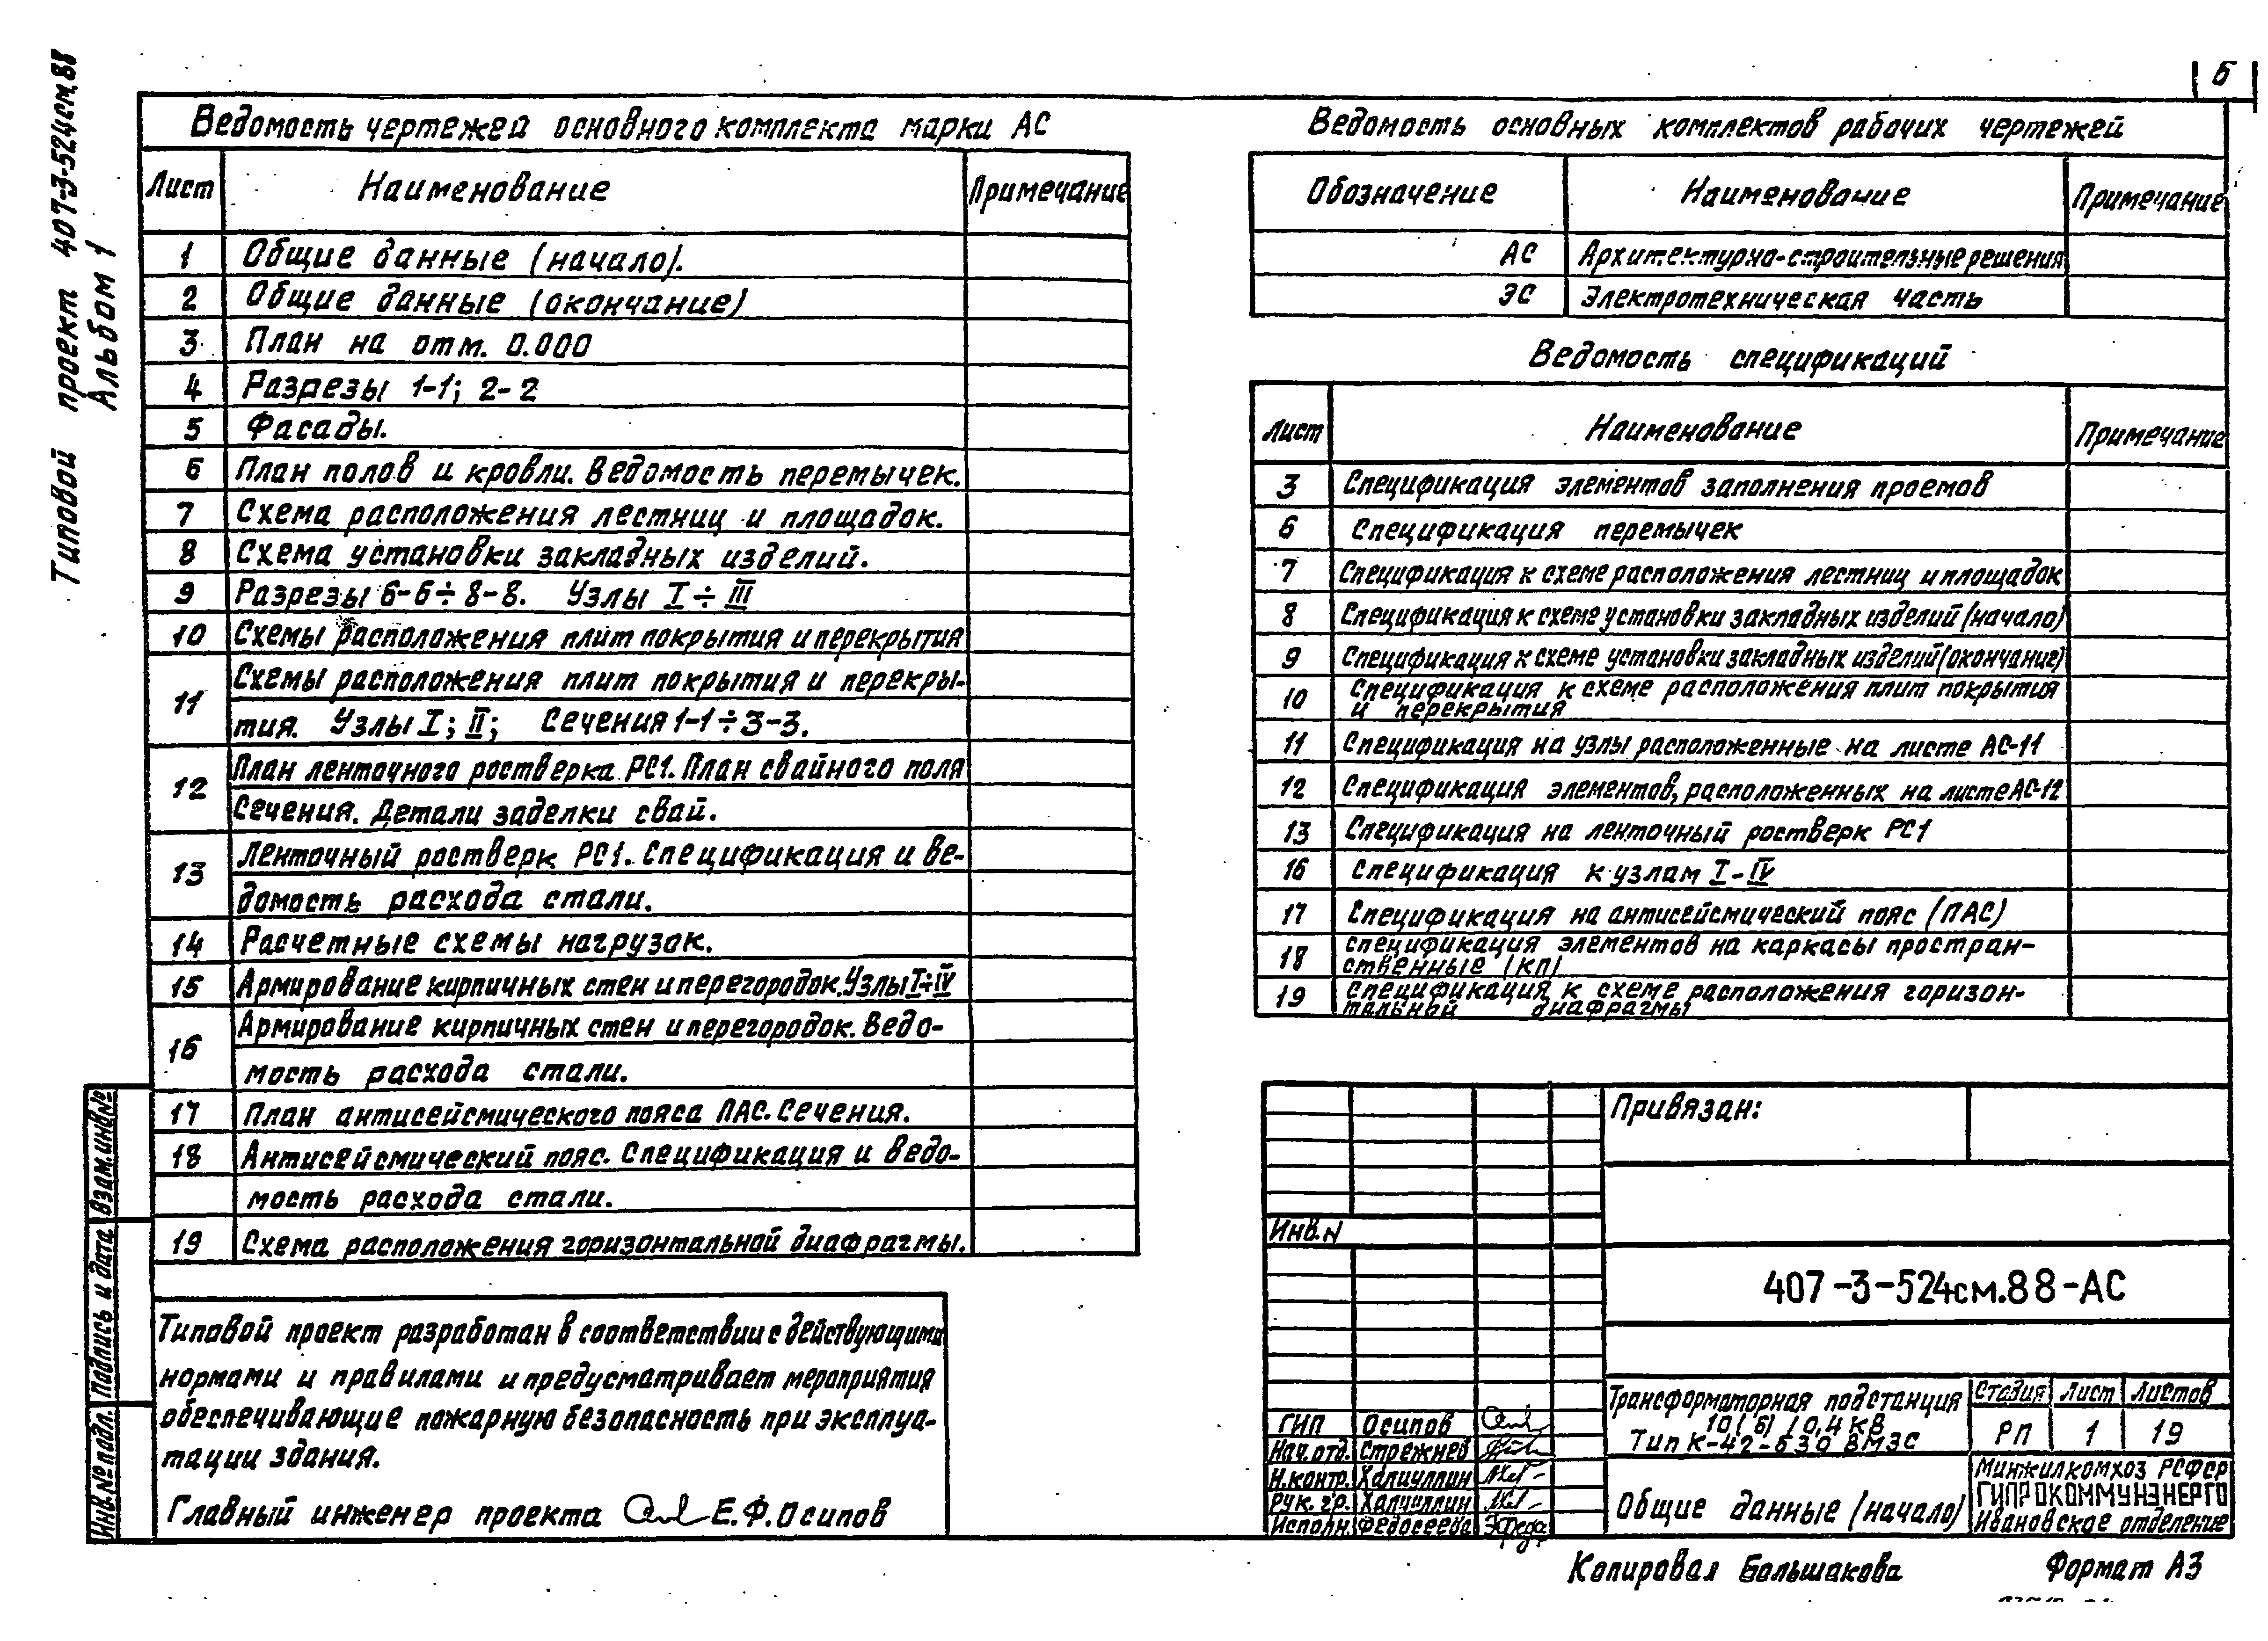 6
Типовой проект 407-3-524см.88
Альбом 1
Ведомость чертежей основного комплекта марки АС
Лист Наименование Примечание
1 Общие данные (начало).
2 Общие данные (окончание)
3 План на отм. 0.000
4 Разрезы 1-1; 2-2
5 Фасады.
6 План полов и кровли. Ведомость перемычек.
7 Схема расположения лестниц и площадок.
8 Схема установки закладных изделий.
9 Разрезы 6-6÷8-8. Узлы I÷III
10 Схемы расположения плит покрытия и перекрытия
11 Схемы расположения плит покрытия и перекры-
тия. Узлы I; II; Сечения 1-1÷3-3.
12 План ленточного ростверка РС1. План свайного поля
Сечения. Детали заделки свай.
13 Ленточный ростверк РС1. Спецификация и ве-
домость расхода стали.
14 Расчетные схемы нагрузок.
15 Армирование кирпичных стен и перегородок. Узлы I÷IV
16 Армирование кирпичных стен и перегородок. Ведо-
мость расхода стали.
17 План антисейсмического пояса ПАС. Сечения.
18 Антисейсмический пояс. Спецификация и ведо-
мость расхода стали.
19 Схема расположения горизонтальной диафрагмы.
Типовой проект разработан в соответствии с действующими
нормами и правилами и предусматривает мероприятия
обеспечивающие пожарную безопасность при эксплуа-
тации здания.
Главный инженер проекта Е.Ф.Осипов
Взам.инв№
Подпись и дата
Инв.№подл.
Ведомость основных комплектов рабочих чертежей
Обозначение Наименование Примечание
АС Архитектурно-строительные решения
ЭС Электротехническая часть
Ведомость спецификаций
Лист Наименование Примечание
3 Спецификация элементов заполнения проемов
6 Спецификация перемычек
7 Спецификация к схеме расположения лестниц и площадок
8 Спецификация к схеме установки закладных изделий (начало)
9 Спецификация к схеме установки закладных изделий (окончание)
10 Спецификация к схеме расположения плит покрытия
и перекрытия
11 Спецификация на узлы расположенные на листе АС-11
12 Спецификация элементов, расположенных на листе АС-12
13 Спецификация на ленточный ростверк РС1
16 Спецификация к узлам I-IV
17 Спецификация на антисейсмический пояс (ПАС)
18 Спецификация элементов на каркасы простран-
ственные (КП)
19 Спецификация к схеме расположения горизон-
тальной диафрагмы
Привязан:
Инв.N
407-3-524см.88-АС
Трансформаторная подстанция
10(6)/0,4 кВ
Тип К-42-630 ВМ3С
Стадия Лист Листов
РП 1 19
ГИП Осипов
Нач.отд. Стрежнев
Н.контр. Халиуллин
Рук.гр. Халиуллин
Исполн. Федосеева
Общие данные (начало)
Минжилкомхоз РСФСР
ГИПРОКОММУНЭНЕРГО
Ивановское отделение
Копировал Большакова Формат А3